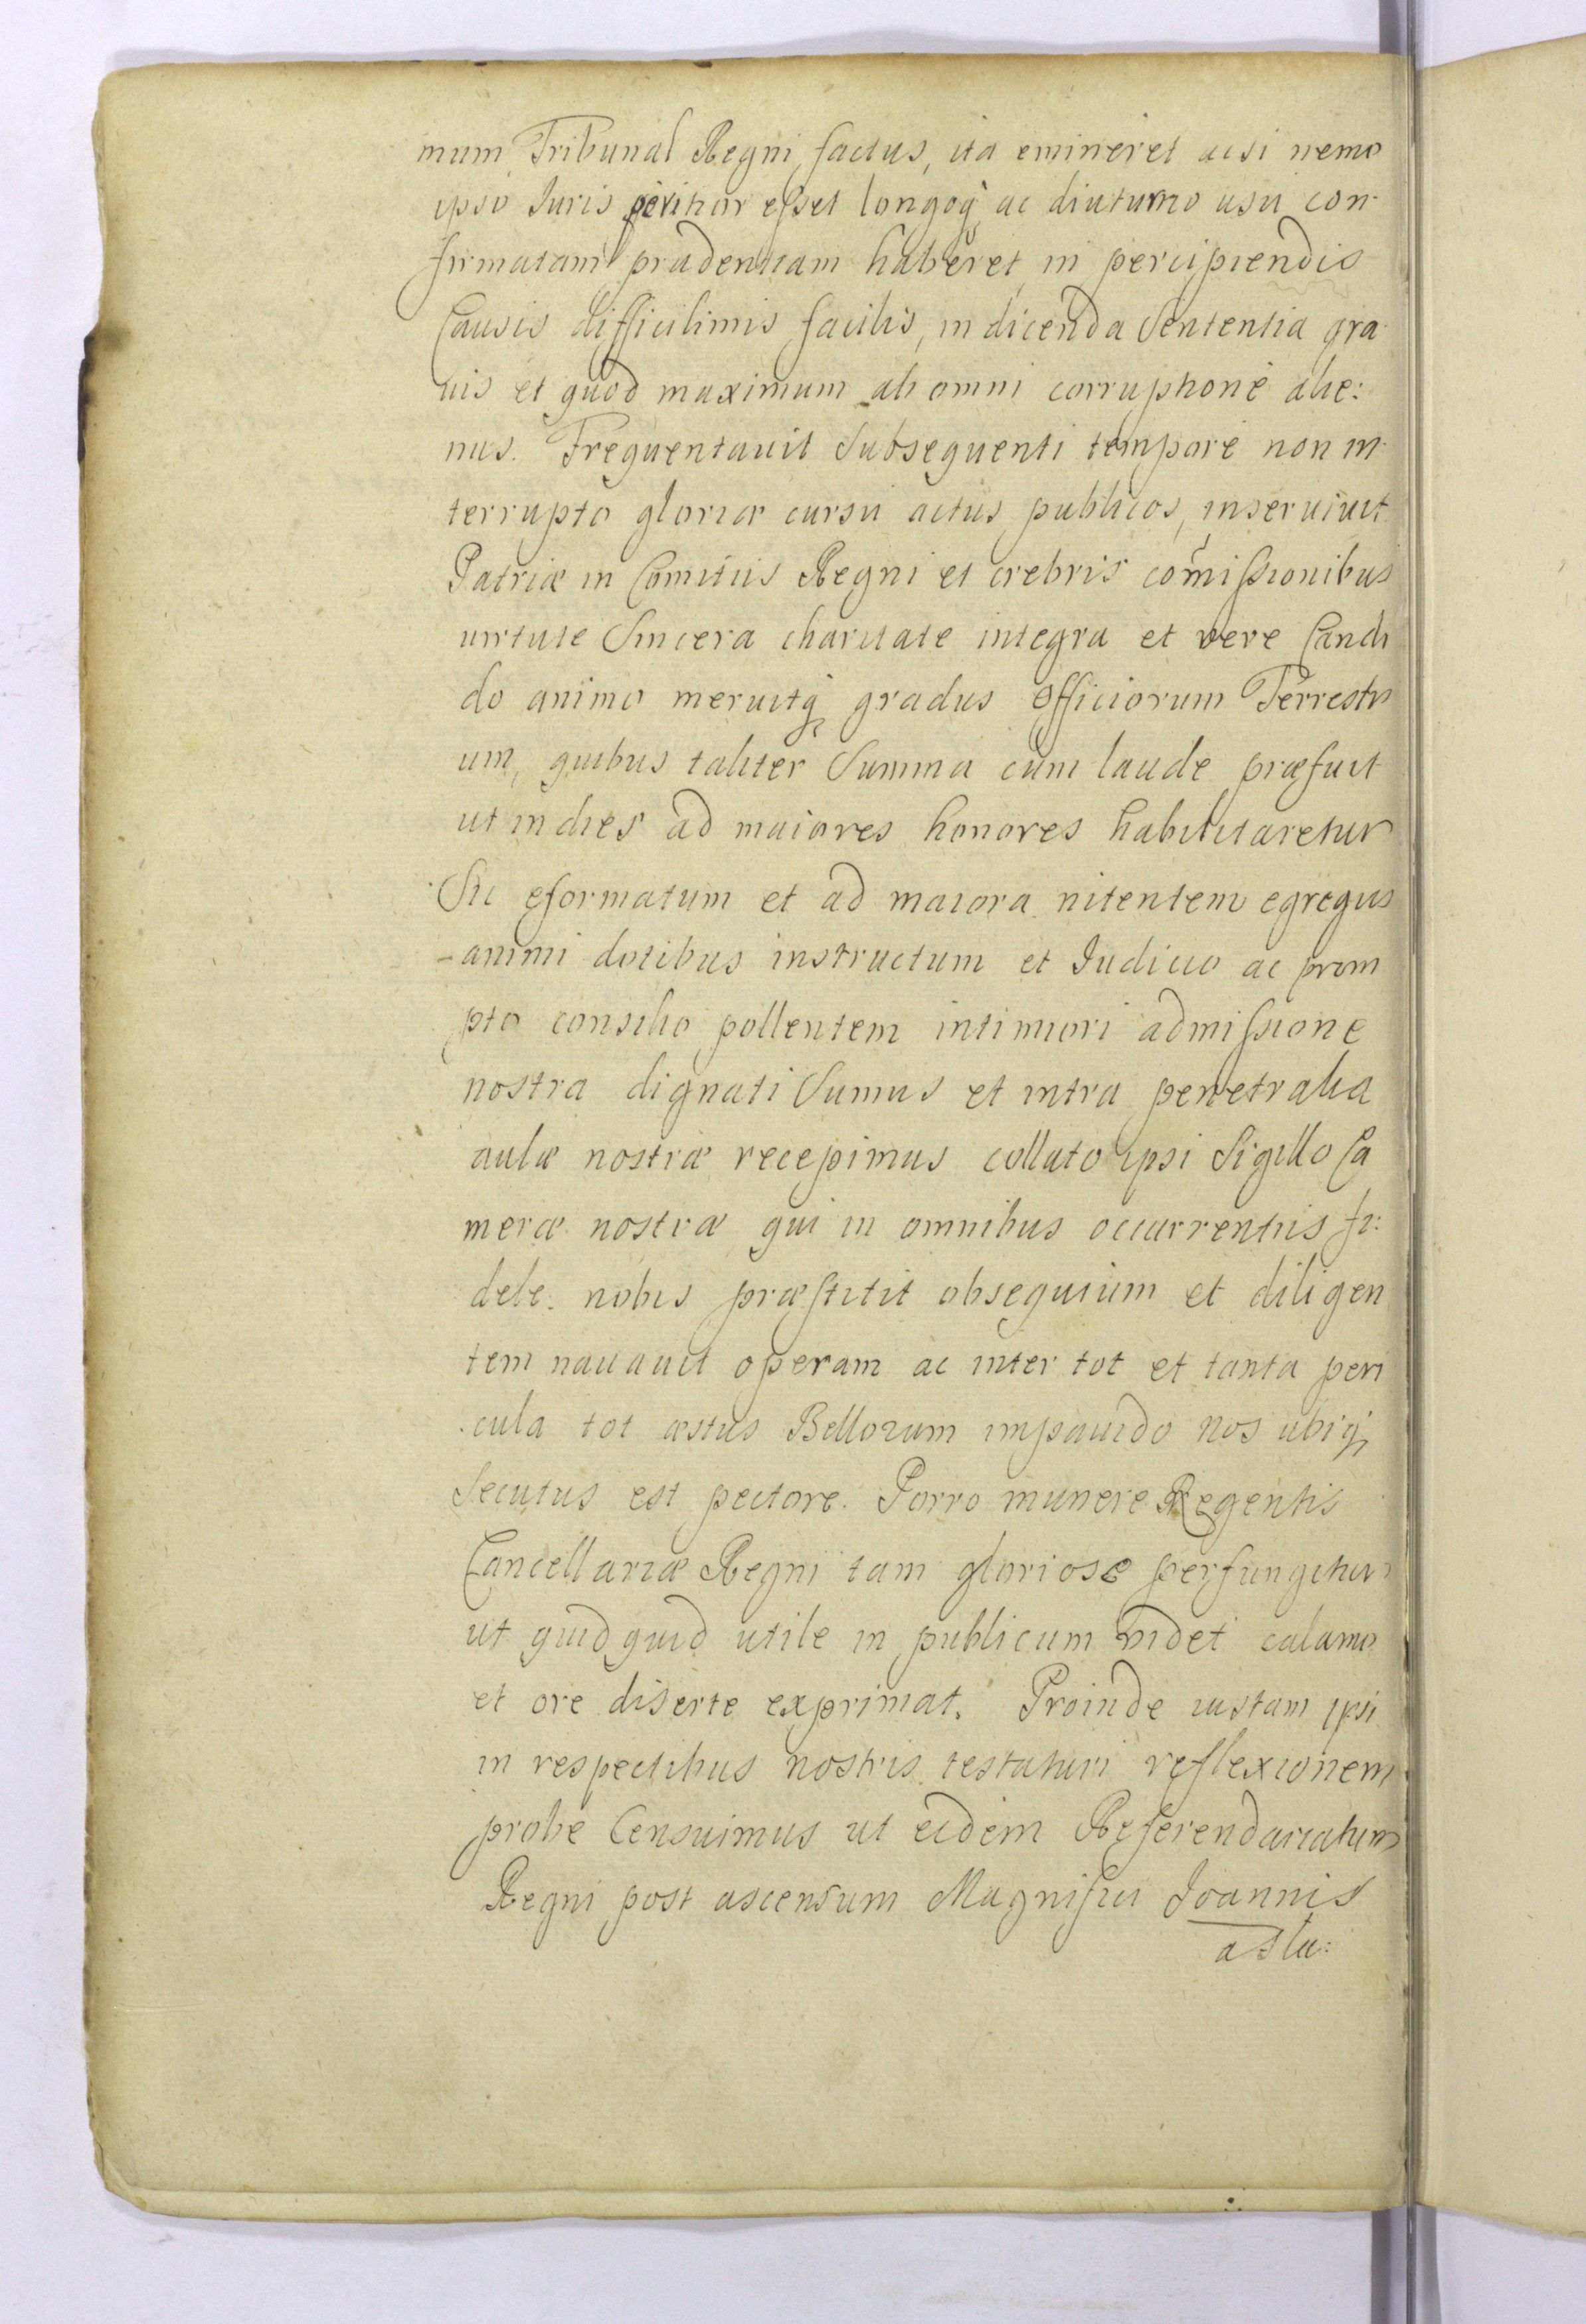 mum Tribunal Regni factus, ita emineret acsi nemo
ipso Iuris peritior esset longoq̨ ac diuturno usu con-
firmatam prudentiam haberet, in percipiendis
Causis difficilimis facilis, in dicenda Sententia gra-
uis et quod maximum ab omni corruptione alie:
nus. Frequentauit Subsequenti tempore non in-
terrupto gloriæ cursu actus publicos, inseruiuit
Patriæ in Comitiis Regni et crebris com̃issionibus
uirtute Sincera charitate integra et vere Candi
do animo meruitq̨ gradus Officiorum Terrestri
um, quibus taliter Summa cum laude præfuit
ut indies ad maiores honores habilitaretur
Sic eformatum et ad maiora nitentem egregiis
animi dotibus instructum et Iudicio ac prom
pto consilio pollentem intimiori admissione
nostra dignati Sumus et intra penetralia
aulæ nostræ recepimus collato ipsi Sigillo Ca
meræ nostræ qui in omnibus occurrentiis fi:
dele nobis præstitit obsequium et diligen
tem nauauit operam ac inter tot et tanta peri
cula tot æstus Bellorum impauido nos ubiq̨
Secutus est pectore. Porro munere Regentis
Cancellariæ Regni tam gloriose perfungitur
ut quidquid utile in publicum uidet calamo
et ore diserte exprimat. Proinde iustam ipsi
in respectibus nostris testaturi reflexionem
probe Censuimus ut eidem Referendariatum
Regni post ascensum Magnifici Joannis